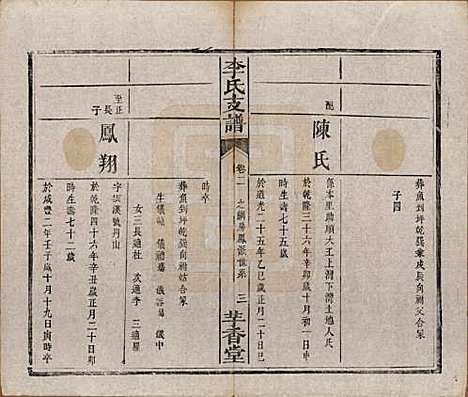 葬魚剅坪乾巽兼戌辰向祔父合冢
子四
配
陳氏
係本里助順大王上灣下灣土地人氏
於乾隆三十六年辛卯歲十月初一日
時生壽七十五歲
於道光二十五年乙巳歲正月二十日巳
李氏支譜
卷二
三
芉香堂
時卒
葬魚剅坪乾巽向祔祜合冢
生儀 儀 儀 儀中
女三長適杜 次適李 三適
至正長子
鳳翔
字 漢號丹山
於乾隆四十六年辛丑歲正月二十日卯
時生壽七十二歲
於咸豐二年壬子歲十月十九日寅時卒